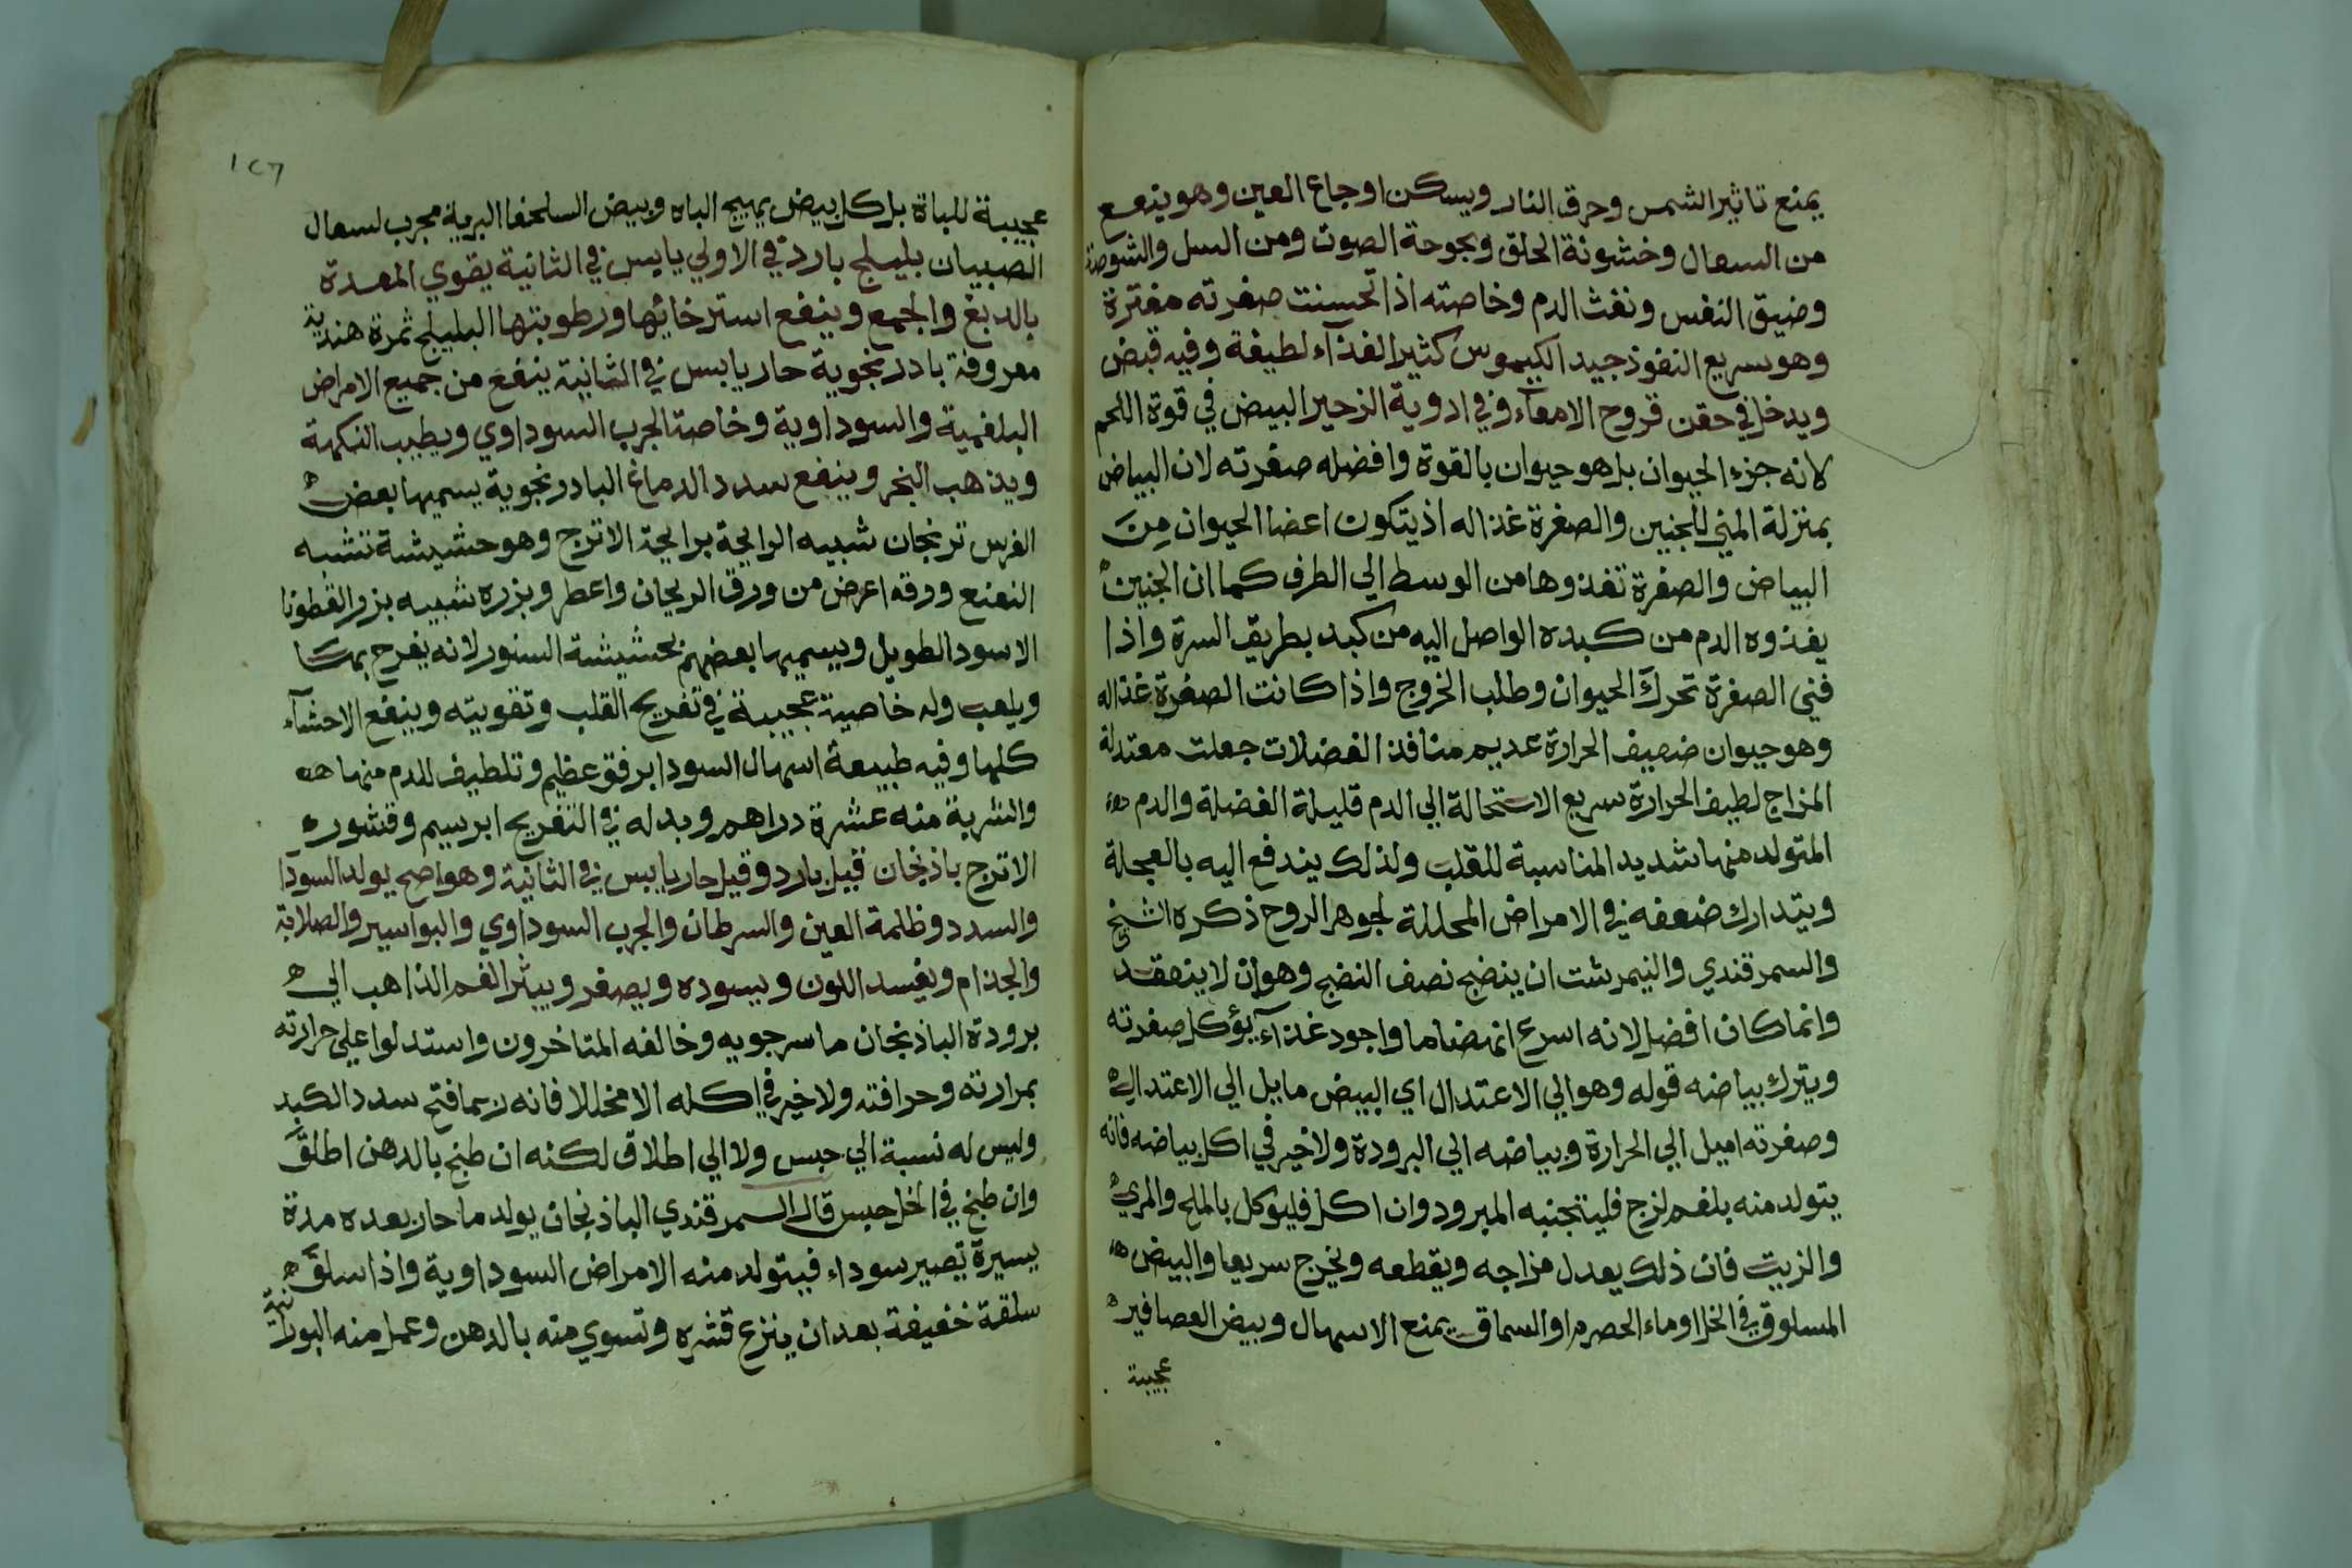 يمنع تاثير الشمس وحرق النار ويسكن اوجاع العين وهو ينفع
من السعال وخشونة الحلق وبحوحة الصوت ومن السل والشوصة
وضيق النفس ونفث الدم وخاصته اذا تحسنت صفرته مفترة
وهو سريع النفوذ جيد الكيموس كثير الغذآء لطيفة وفيه قبض
ويدخل في حقن قروح الامعآء وفي ادوية الزحير البيض في قوة اللحم
لانه جزء الحيوان بل هو حيوان بالقوة وافضله صفرته لان البياض
بمنزلة المني للجنين والصفرة غذا له اذ يتكون اعضا الحيوان من
البياض والصفرة تغذوها من الوسط الي الطرف كما ان الجنين
يغذوه الدم من كبده الواصل اليه من كبد بطريق السرة واذا
فني الصفرة تحرك الحيوان وطلب الخروج واذا كانت الصفرة غذا له
وهو حيوان ضعيف الحرارة عديم منافذ الفضلات جعلت معتدلة
المزاج لطيف الحرارة سريع الاستحالة الي الدم قليلة الفضلة والدم
المتولد منها شديد المناسبة للقلب ولذلك يندفع اليه بالعجلة
ويتدارك ضعفه في الامراض المحللة لجوهر الروح ذكره الشيخ
والسمرقندي والنيمرشت ان ينضج نصف النضج وهو ان لا ينعقد
وانما كان افضل لانه اسرع انهضاما واجود غذآء يؤكل صفرته
ويترك بياضه قوله وهو الي الاعتدال اي البيض مايل الي الاعتدال
وصفرته اميل الي الحرارة وبياضه الي البرودة ولا خير في اكل بياضه فانه
يتولد منه بلغم لزج فليتجنبه المبرود وان اكل فليوكل بالملح والمري
والزيت فان ذلك يعدل مزاجه ويقطعه ويخرج سريعا والبيض
المسلوق في الخل او ماء الحصرم او السماق يمنع الاسهال وبيض العصافير
عجيبة
١٢٦
عجيبة للباة بل كل بيض يهيج الباه وبيض السلحفا البرية مجرب لسعال
الصبيان بليلج بارد في الاولي يابس في الثانية يقوي المعدة
بالدبغ والجمع وينفع استرخائها ورطوبتها البليلج ثمرة هندية
معروفة بادرنجوية حار يابس في الثانية ينفع من جميع الامراض
البلغمية والسوداوية وخاصتا الجرب السوداوي ويطيب النكهة
ويذهب البخر وينفع سدد الدماغ البادرنجوية يسميها بعض
الفرس ترنجان شبيه الرايحة برايحة الاترج وهو حشيشة تشبه
النعنع وورقه اعرض من ورق الريحان واعطر وبزره شبيه بزر القطونا
الاسود الطويل ويسميها بعضهم بحشيشة السنور لانه يفرح بمسا
ويلعب وله خاصية عجيبة في تفريح القلب وتقويته وينفع الاحشآء
كلها وفيه طبيعة اسهال السودا برفق عظيم وتلطيف للدم منها
والشربة منه عشرة دراهم وبدله في التفريح ابرسيم وقشور
الاترج باذنجان قيل بارد وقيل حار يابس في الثانية وهو اصح يولد السودا
والسدد وظلمة العين والسرطان والجرب السوداوي والبواسير والصلابة
والجذام ويفسد اللون ويسوده ويصفر ويبثر الفم الذاهب الي
برودة الباذنجان ماسرجويه وخالفه المتاخرون واستدلوا علي حرارته
بمرارته وحرافته ولا خير في اكله الا مخللا فانه ربما فتح سدد الكبد
وليس له نسبة الي حبس ولا الي اطلاق لكنه ان طبخ بالدهن اطلق
وان طبخ في الخل حبس قال السمرقندي الباذنجان يولد ما حار بعده مدة
يسيرة تصير سوداء فيتولد منه الامراض السوداوية واذا سلق
سلقة خفيفة بعد ان ينزع قشره وتسوي منه بالدهن وعمل منه البورانية